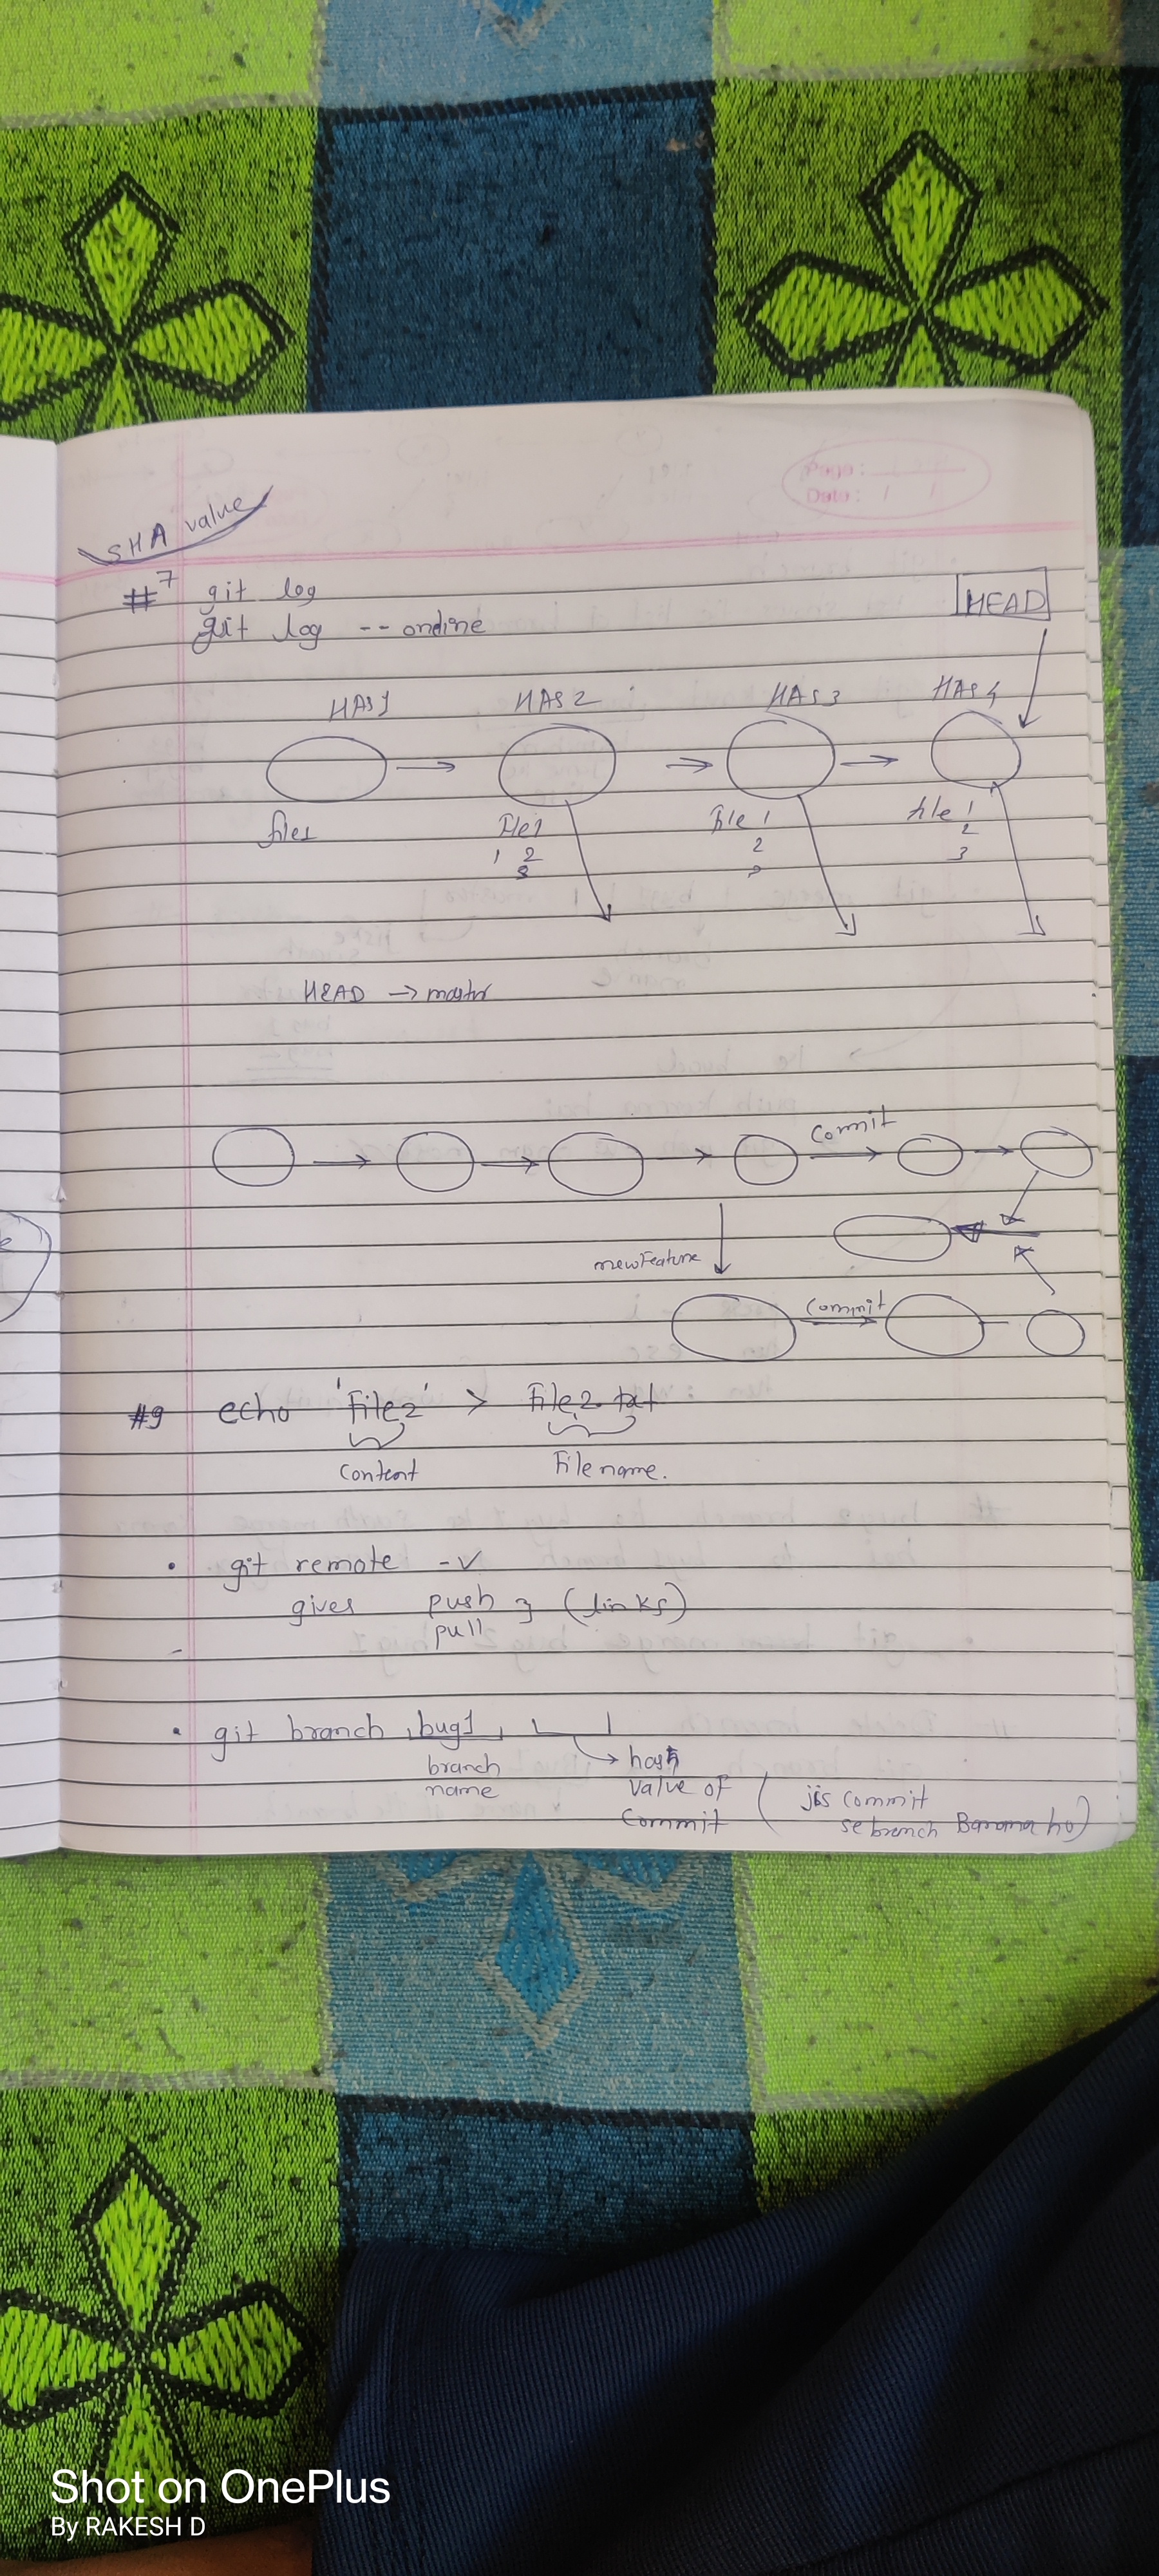 Page:
Date: / /
SHA value
#7 git log
git log -- ondine
HEAD
HAS1 HAS2 HAS3 HAS4
files File1 file 1 file 1
1 2 2 2
3 3
HEAD → master
commit
newFeature
commit
#9 echo 'File2' > File2.txt
content Filename.
• git remote -v
gives push } (links)
pull
• git branch bug1
branch → hash
name value of ( jis commit
commit se branch Banana ho)
Shot on OnePlus
By RAKESH D